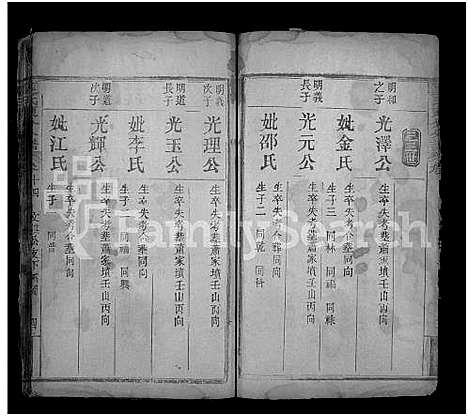 明和之子
光澤公
生卒失考葬蕭家墳壬山丙向
妣金氏
生卒失考合葬同向
生子三 同林 同福 同秾
明義長子
光元公
生卒失考葬蕭家墳壬山丙向
妣邵氏
生卒失考合葬同向
生子二 同乾 同科
明義次子
光理公
生卒失考葬蕭家墳壬山丙向
明道長子
光玉公
生卒失考葬蕭家墳壬山丙向
妣李氏
生卒失考合葬同向
生子二 同福 同興
明道次子
光輝公
生卒失考葬蕭家墳壬山丙向
妣江氏
生卒失考合葬同向
生子一 同普
FamilySearch